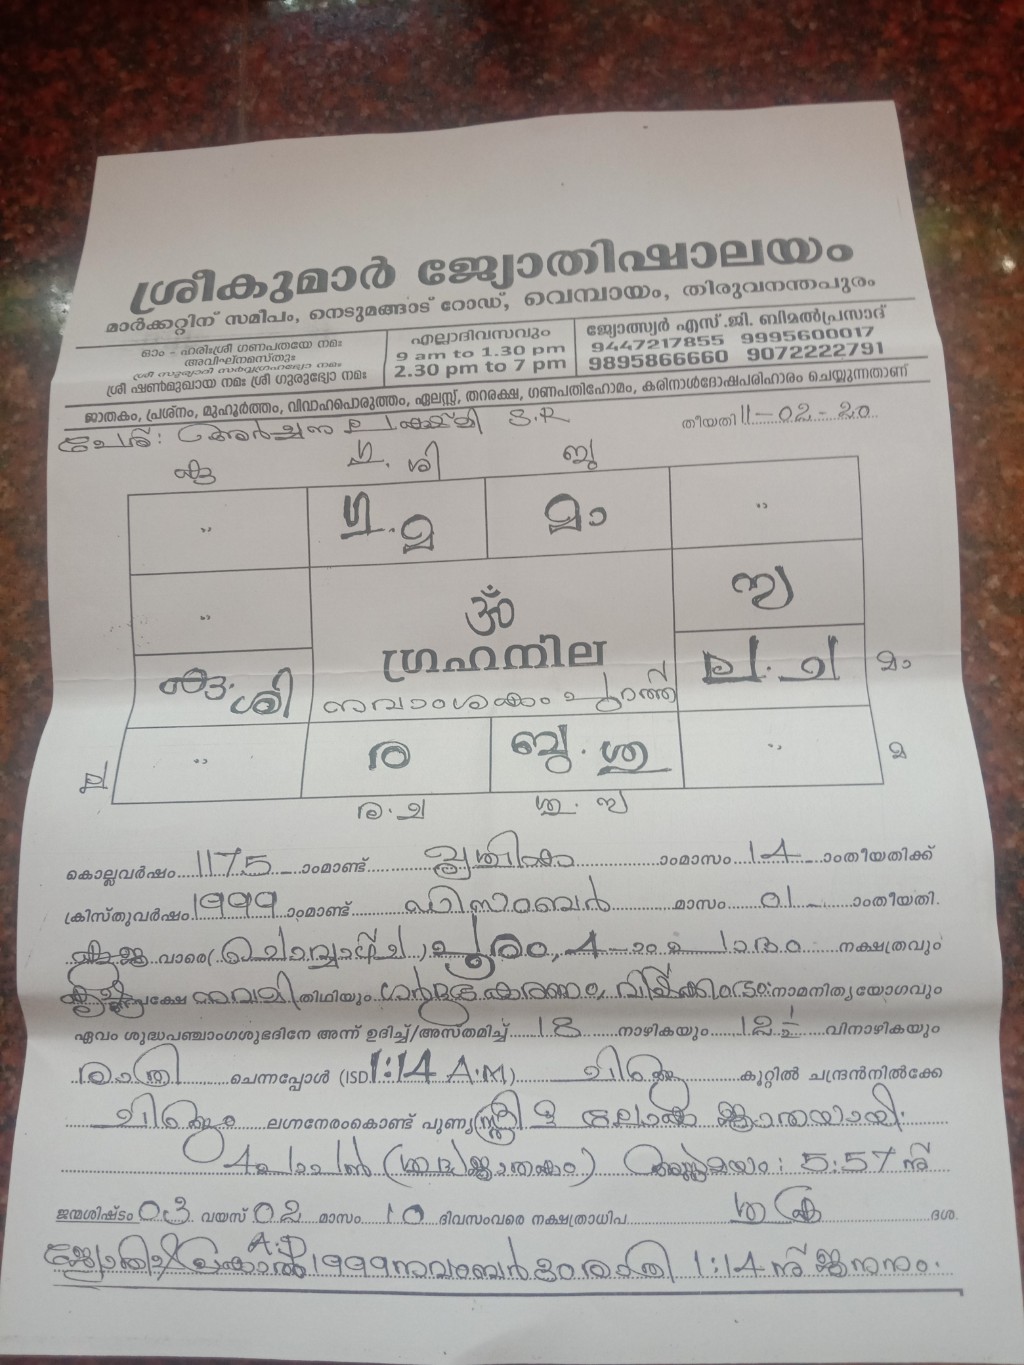 ശ്രീകുമാർ ജ്യോതിഷാലയം
മാർക്കറ്റിന് സമീപം, നെടുമങ്ങാട് റോഡ്, വെമ്പായം, തിരുവനന്തപുരം
ഓം - ഹരിഃശ്രീ ഗണപതയേ നമഃ
അവിഘ്നമസ്തുഃ
ശ്രീ സൂര്യാദി സർവ്വഗ്രഹഭ്യോ നമഃ
ശ്രീ ഷൺമുഖായ നമഃ ശ്രീ ഗുരുഭ്യോ നമഃ
എല്ലാദിവസവും
9 am to 1.30 pm
2.30 pm to 7 pm
ജ്യോത്സ്യർ എസ്.ജി. ബിമൽപ്രസാദ്
9447217855 9995600017
9895866660 9072222791
ജാതകം, പ്രശ്നം, മുഹൂർത്തം, വിവാഹപൊരുത്തം, ഏലസ്സ്, തറരക്ഷ, ഗണപതിഹോമം, കരിനാൾദോഷപരിഹാരം ചെയ്യുന്നതാണ്
പേര്: അർച്ചന ലക്ഷ്മി S.R തീയതി 11-02-20
ഗു. ശി ബു
ഗു. മ മാ
സ്വ
ഓം
ഗ്രഹനില
നവാംശകം പുറത്ത്
ശി ല. ച മാ
ല ര ബു. ശു മ
ര. ച ശു. സ്വ
കൊല്ലവർഷം 1175 ാംമാണ്ട് വൃശ്ചികം ാംമാസം 14 ാംതീയതിക്ക്
ക്രിസ്തുവർഷം 1999 ാംമാണ്ട് ഡിസംബർ മാസം 01 ാംതീയതി.
വാരെ (ചൊവ്വാഴ്ച) പൂരം, 4-ാം പാദം നക്ഷത്രവും
പക്ഷേ നവമി തിഥിയും ഗർദ്ദഭകരണം, വിഷ്കംഭം നാമനിത്യയോഗവും
ഏവം ശുദ്ധപഞ്ചാംഗശുഭദിനേ അന്ന് ഉദിച്ച്/അസ്തമിച്ച് 18 നാഴികയും 12½ വിനാഴികയും
രാത്രി ചെന്നപ്പോൾ (ISD 1:14 A.M) ചിങ്ങ കൂറ്റിൽ ചന്ദ്രൻനില്ക്കേ
ചിങ്ങം ലഗ്നനേരംകൊണ്ട് പുണ്യ സ്ത്രീ ജാതയായി.
അസ്തമയം : 5:57 ന്
ജന്മശിഷ്ടം 03 വയസ് 02 മാസം 10 ദിവസംവരെ നക്ഷത്രാധിപ ശുക്ര ദശ.
A.D 1999 നവംബർ 30 രാത്രി 1:14 ന് ജനനം.